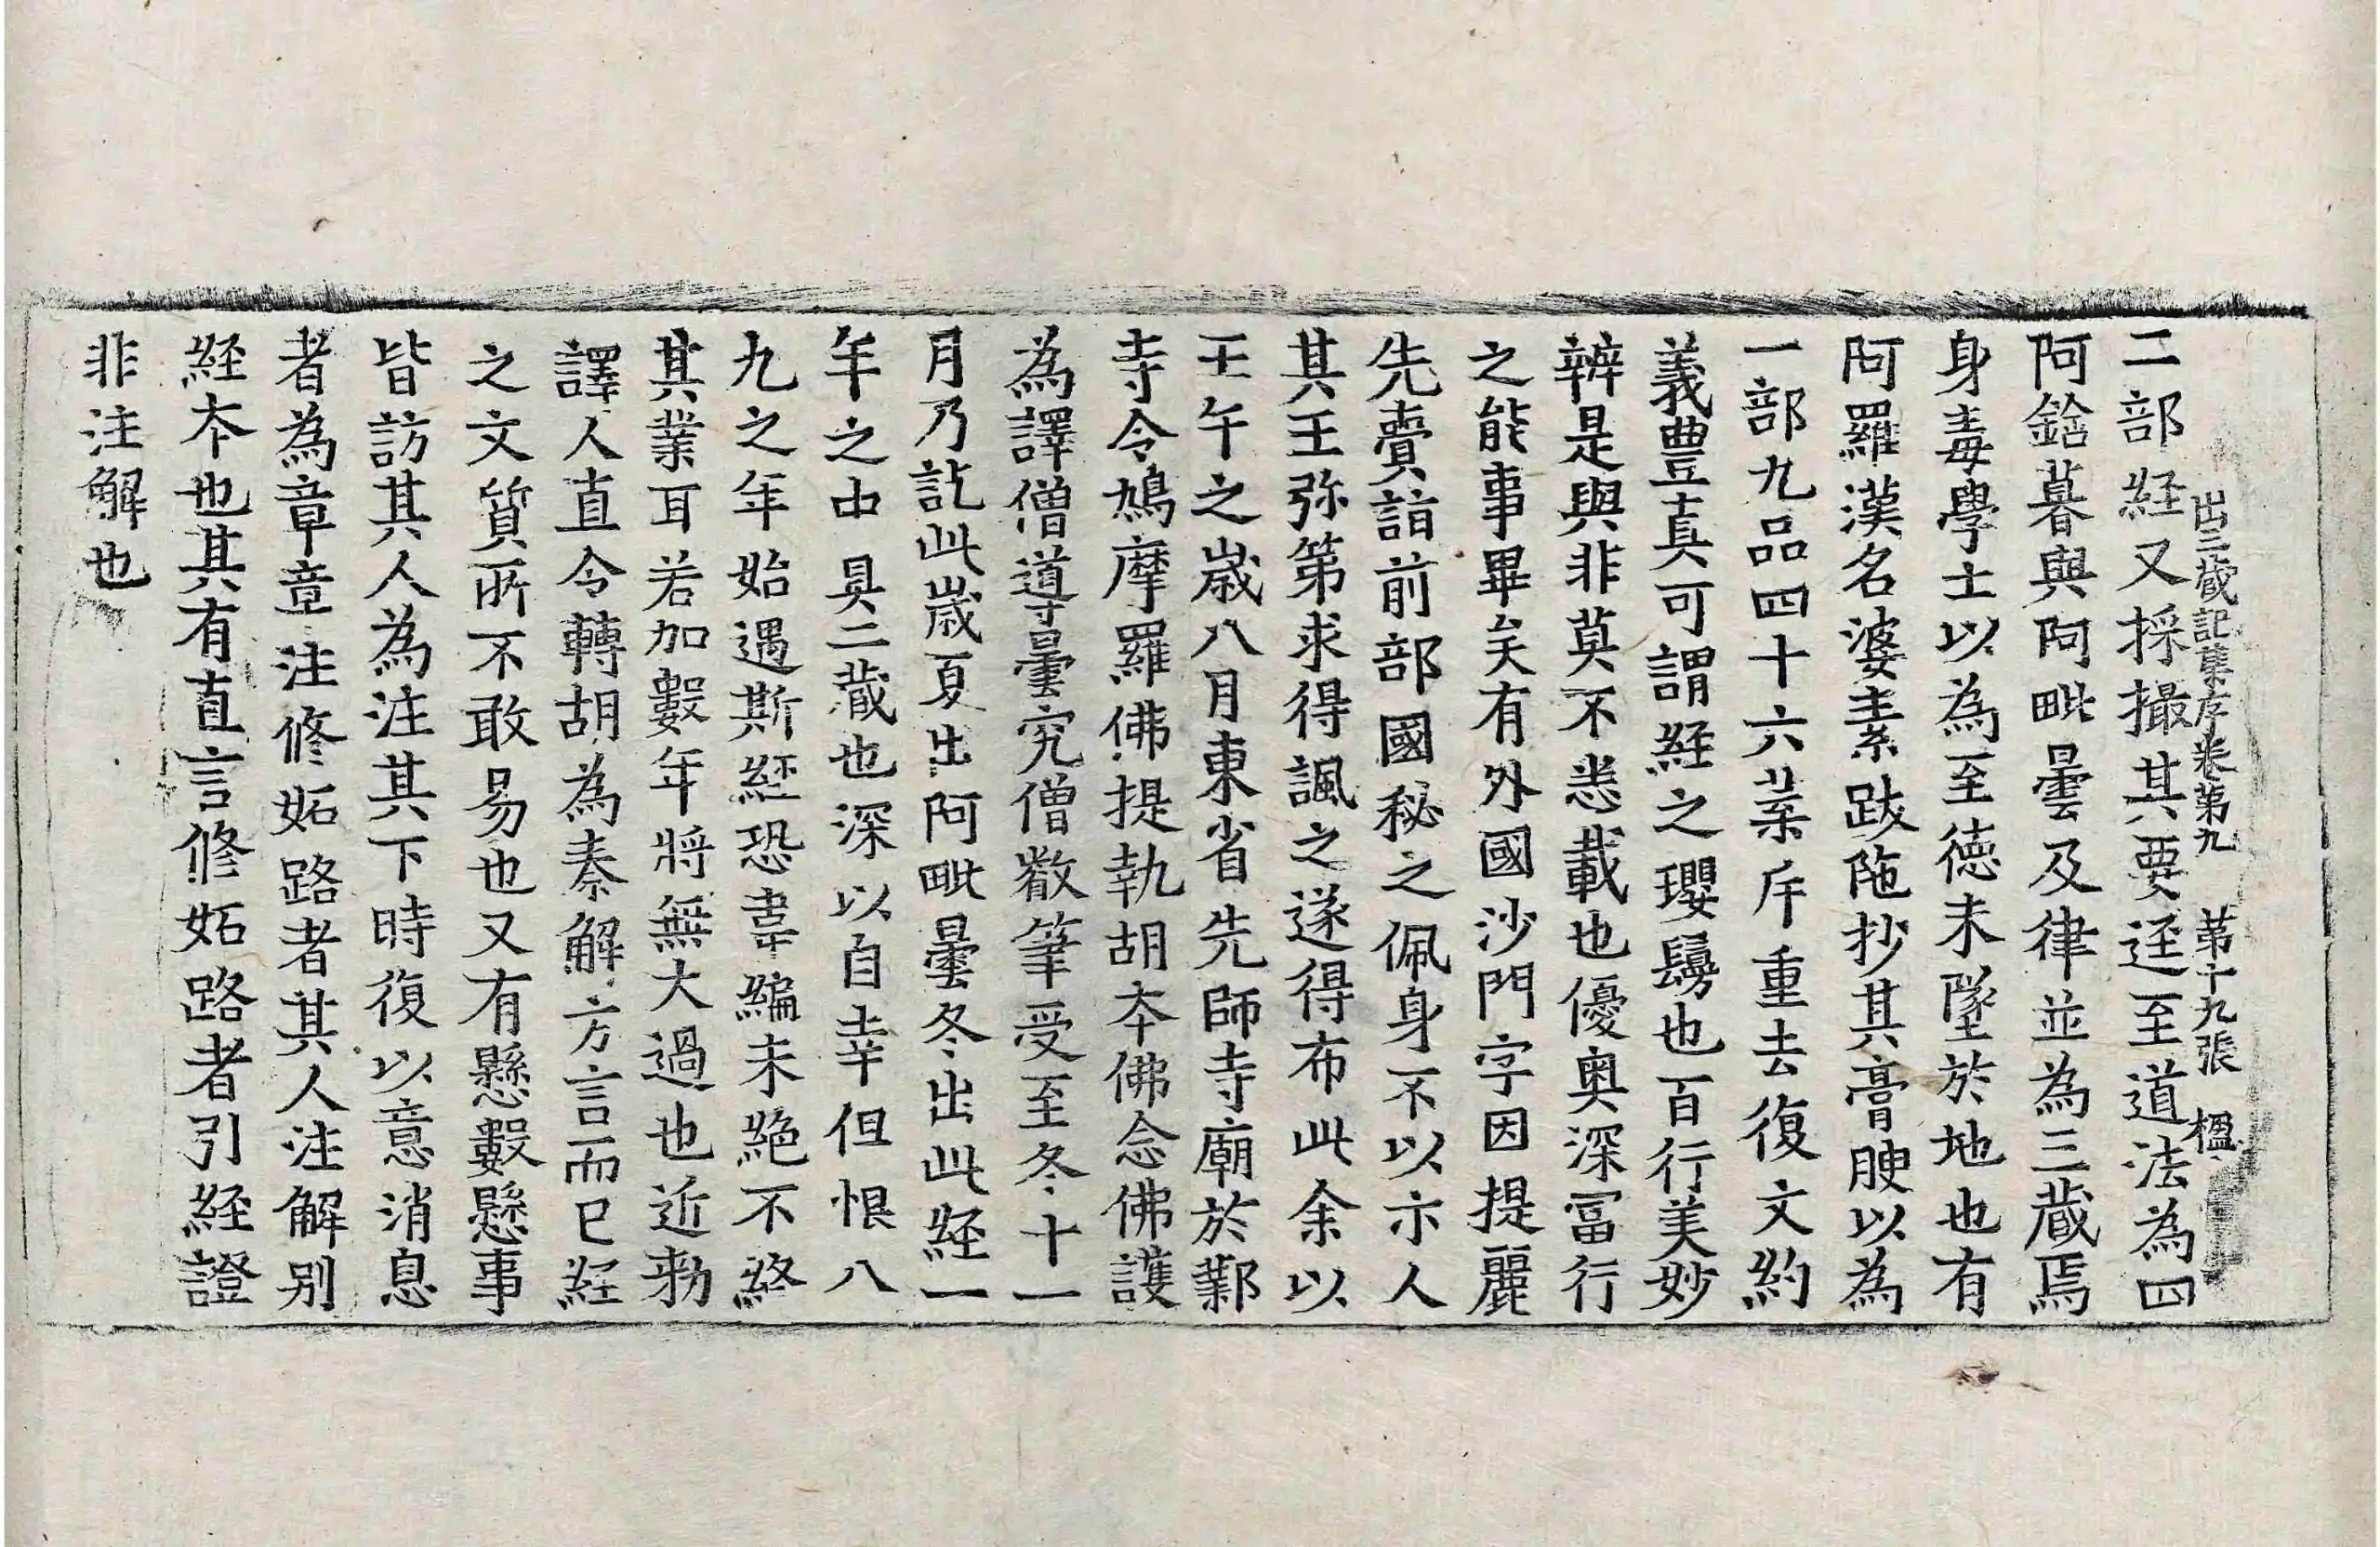 出三蔵記集序卷第九 第十九張 楹
二部経又採撮其要迳至道法為四
阿鋡暮與阿毗曇及律並為三蔵焉
身毒學士以為至徳未墜於地也有
阿羅漢名婆素跋陁抄其膏腴以為
一部九品四十六葉斥重去復文約
義豊真可謂経之瓔鬘也百行美妙
辨是與非莫不悉載也優奥深冨行
之能事畢矣有外國沙門字因提麗
先賷詣前部國秘之佩身不以示人
其王弥第求得諷之遂得布此余以
壬午之歳八月東省先師寺廟於鄴
寺令鳩摩羅佛提執胡夲佛念佛護
為譯僧導曇究僧叡筆受至冬十一
月乃訖此歳夏出阿毗曇冬出此経一
年之中具二蔵也深以自幸但恨八
九之年始遇斯経恐韋編未絶不終
其業耳若加數年將無大過也近勑
譯人直令轉胡為秦解方言而已経
之文質所不敢易也又有懸數懸事
皆訪其人為注其下時復以意消息
者為章章注修妬路者其人注解别
経夲也其有直言修妬路者引経證
非注解也